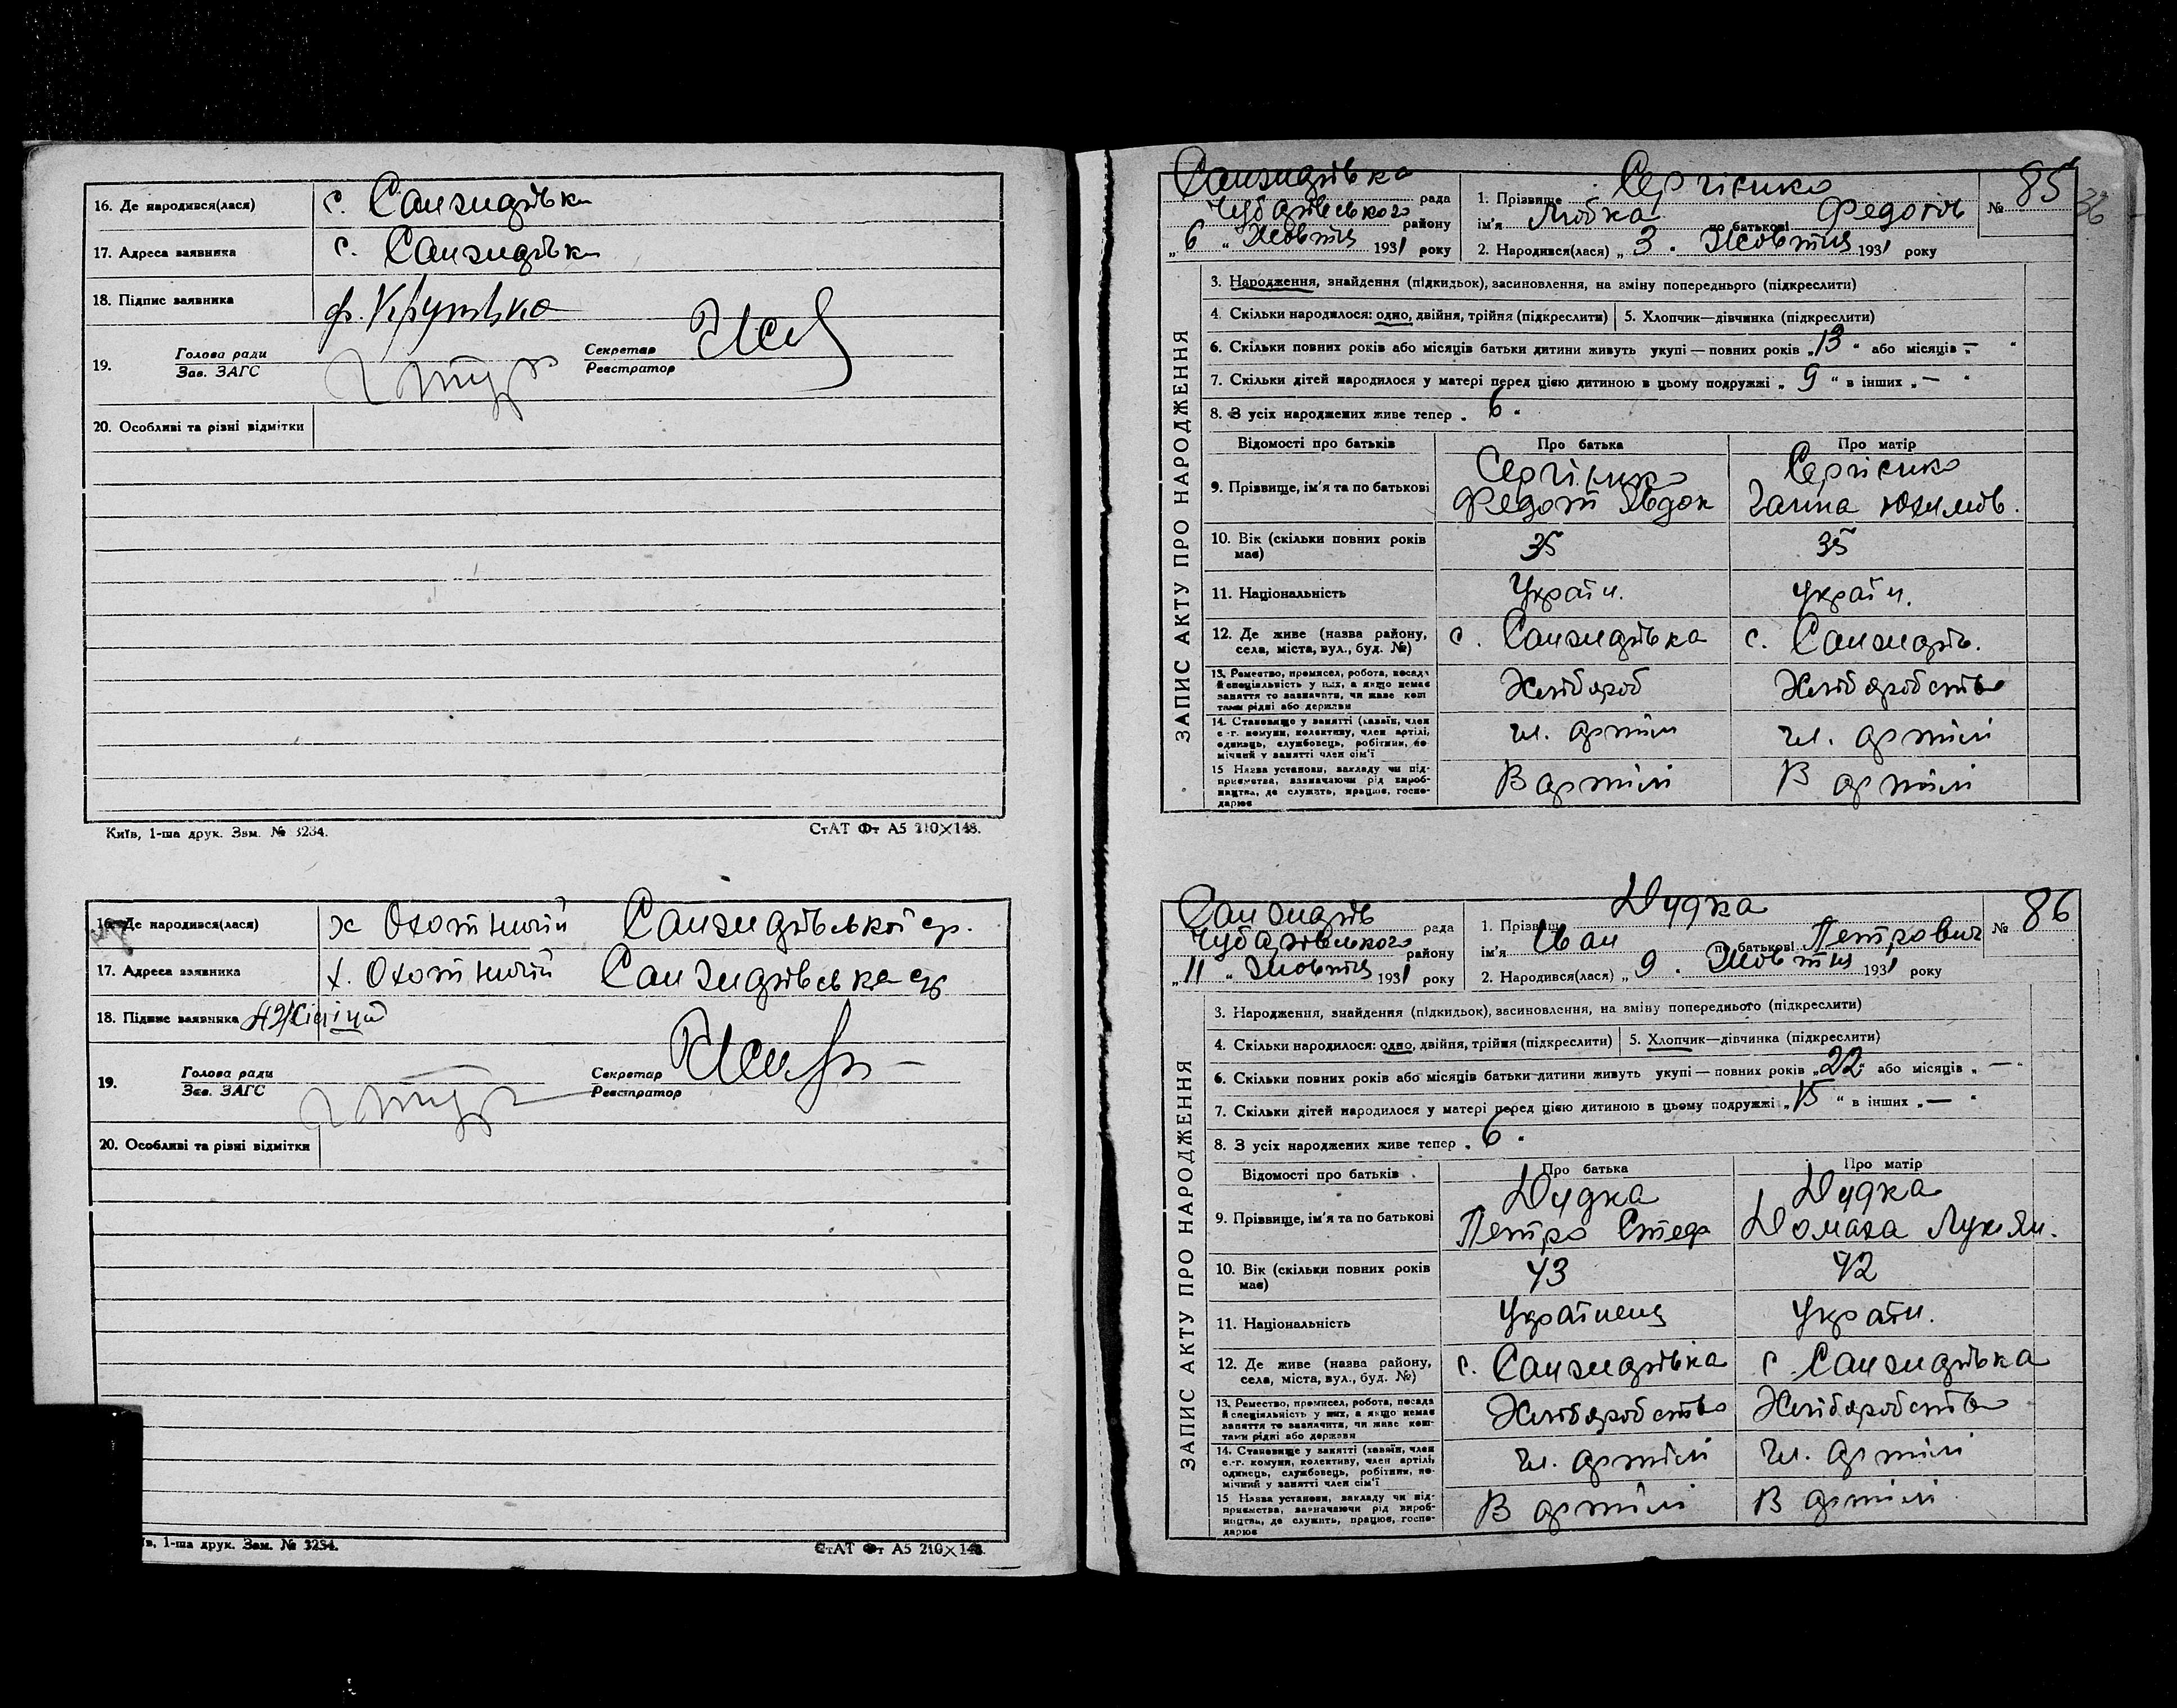 16. Де народився(лася) с. Санжидрівка
17. Адреса заявника с. Санжидрівка
18. Підпис заявника
19. Голова ради
Зав. ЗАГС
Секретар
Реєстратор
20. Особливі та різні відмітки
Київ, 1-ша друк. Зам. № 3234. СтАТ Фт А5 210×148.
16. Де народився(лася) х Охотничий Санжидрівської ср.
17. Адреса заявника х. Охотничий Санжидрівська ср
18. Підпис заявника
19. Голова ради
Зав. ЗАГС
Секретар
Реєстратор
20. Особливі та різні відмітки
їв, 1-ша друк. Зам. № 3234. СтАТ Фт А5 210×148.
36
Санжидрівка рада
Чубарівського району
„6“ Жовтня 1931 року
1. Прізвище Сергієнко
ім'я Любка по батькові Федотів
2. Народився(лася) „3. Жовтня 1931 року
№ 85
ЗАПИС АКТУ ПРО НАРОДЖЕННЯ
3. Народження, знайдення (підкидьок), засиновлення, на зміну попереднього (підкреслити)
4. Скільки народилося: одно, двійня, трійня (підкреслити) 5. Хлопчик—дівчинка (підкреслити)
6. Скільки повних років або місяців батьки дитини живуть укупі — повних років „13“ або місяців „—“
7. Скільки дітей народилося у матері перед цією дитиною в цьому подружжі „9“ в інших „—“
8. З усіх народжених живе тепер „6“
Відомості про батьків Про батька Про матір
9. Прізвище, ім'я та по батькові Сергієнко Федот Явдок Сергієнко Ганна Юхимов.
10. Вік (скільки повних років має) 35 35
11. Національність Україн. україн.
12. Де живе (назва району, села, міста, вул., буд. №) с. Санжидрівка с. Санжидрів.
13. Ремество, промисел, робота, посада й спеціяльність у них, а якщо немає заняття то зазначити, чи живе коштами рідні або держави Хлібороб Хліборобство
14. Становище у занятті (хазяїн, член с.-г. комуни, колективу, член артілі, одинець, службовець, робітник, помічний у занятті член сім'ї чл. артілі чл. артілі
15 Назва установи, закладу чи підприємства, зазначаючи рід виробництва, де служить, працює, господарює В артілі В артілі
Санжидрів рада
Чубарівського району
„11“ Жовтня 1931 року
1. Прізвище Дудка
ім'я Іван по батькові Петрович
2. Народився(лася) „9. Жовтня 1931 року
№ 86
ЗАПИС АКТУ ПРО НАРОДЖЕННЯ
3. Народження, знайдення (підкидьок), засиновлення, на зміну попереднього (підкреслити)
4. Скільки народилося: одно, двійня, трійня (підкреслити) 5. Хлопчик—дівчинка (підкреслити)
6. Скільки повних років або місяців батьки дитини живуть укупі — повних років „22“ або місяців „—“
7. Скільки дітей народилося у матері перед цією дитиною в цьому подружжі „15“ в інших „—“
8. З усіх народжених живе тепер „6“
Відомості про батьків Про батька Про матір
9. Прізвище, ім'я та по батькові Дудка Петро Стеф Дудка Домаха Лукян.
10. Вік (скільки повних років має) 43 42
11. Національність Українець Україн.
12. Де живе (назва району, села, міста, вул., буд. №) с. Санжидрівка с. Санжидрівка
13. Ремество, промисел, робота, посада й спеціяльність у них, а якщо немає заняття то зазначити, чи живе коштами рідні або держави Хліборобство Хліборобство
14. Становище у занятті (хазяїн, член с.-г. комуни, колективу, член артілі, одинець, службовець, робітник, помічний у занятті член сім'ї чл. артілі чл. артілі
15 Назва установи, закладу чи підприємства, зазначаючи рід виробництва, де служить, працює, господарює В артілі В артілі